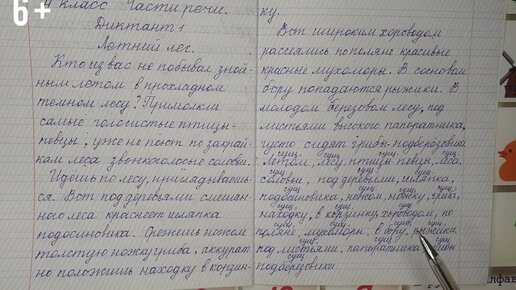 6+
4 класс Части речи.
Диктант 1
Летний лес.
Кто из вас не побывал зной-
ным летом в прохладном
темном лесу? Примолкли
самые голосистые птицы-
певцы, уже не поют по закрай-
кам леса звонкоголосые соловьи.
Идешь по лесу, приглядываешь-
ся. Вот под деревьями смешан-
ного леса краснеет шляпка
подосиновика. Срежешь ножом
толстую ножку гриба, аккурат-
но положишь находку в корзин-
ку.
Вот широким хороводом
расселись по поляне красивые
красные мухоморы. В сосновом
бору попадаются рыжики. В
молодом березовом лесу, под
листьями высокого папоротника,
густо сидят грибы-подберезовики
сущ. сущ. сущ. сущ. сущ.
Летом, лесу, птицы-певцы, леса,
сущ. сущ. сущ.
соловьи, под деревьями, шляпка,
сущ. сущ. сущ. сущ.
подосиновика, ножом, ножку, гриба,
сущ. сущ. сущ.
находку, в корзинку, хороводом, по
сущ. сущ. сущ. сущ.
поляне, мухоморы, в бору, рыжики
сущ. сущ. сущ.
под листьями, папоротника, грибы
сущ.
подберезовики